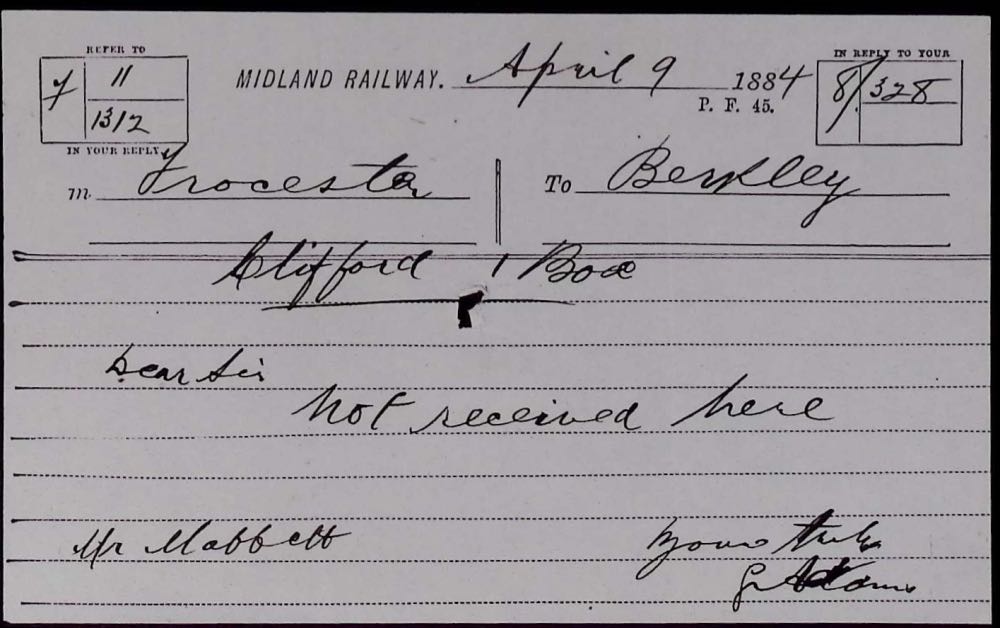 REFER TO
7 11
1312
IN YOUR REPLY
MIDLAND RAILWAY. April 9 1884
P. F. 45.
IN REPLY TO YOUR
8/328
m Frocester To Berkley
Clifford 1 Box
Dear Sir
Not received here
Mr Mabbett Yours truly
G Adams